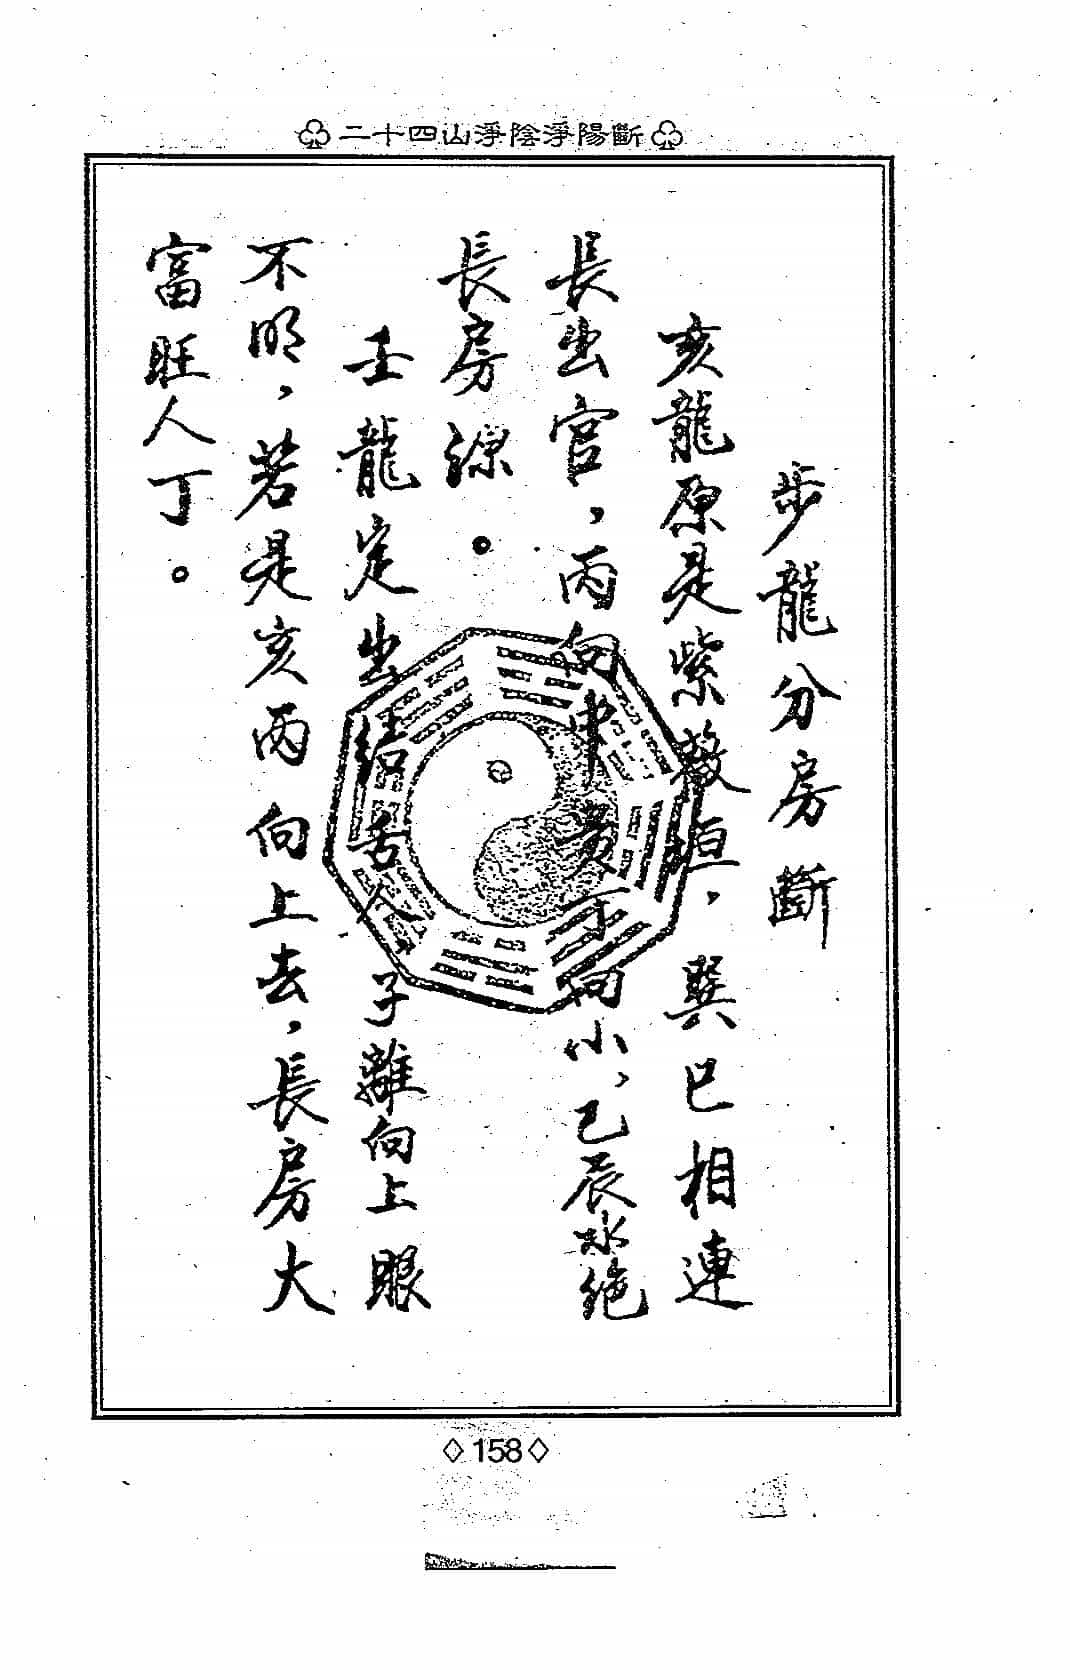 二十四山淨陰淨陽斷
步龍分房斷
亥龍原是紫薇垣，巽巳相連
長出官，丙向中黃丁向小、乙辰水絕
長房源。
壬龍定出結舌人，子離向上眼
不明，若是亥丙向上去，長房大
富旺人丁。
158